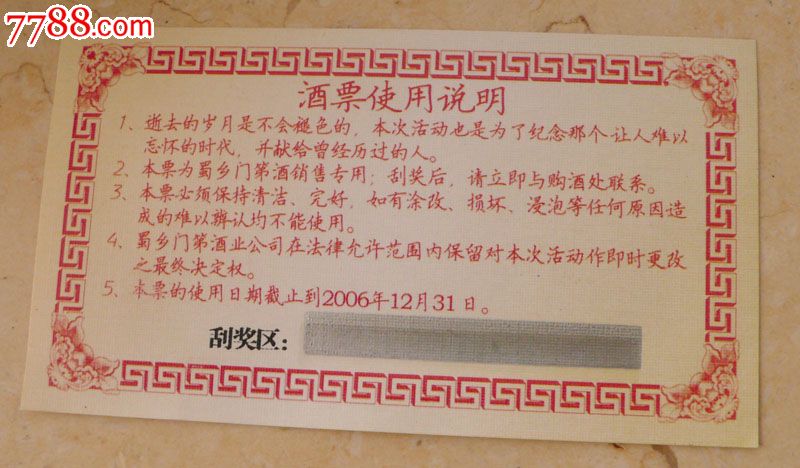 7788.com
酒票使用说明
1、逝去的岁月是不会褪色的，本次活动也是为了纪念那个让人难以
忘怀的时代，并献给曾经历过的人。
2、本票为蜀乡门第酒销售专用；刮奖后，请立即与购酒处联系。
3、本票必须保持清洁、完好，如有涂改、损坏、浸泡等任何原因造
成的难以辨认均不能使用。
4、蜀乡门第酒业公司在法律允许范围内保留对本次活动作即时更改
之最终决定权。
5、本票的使用日期截止到2006年12月31日。
刮奖区：